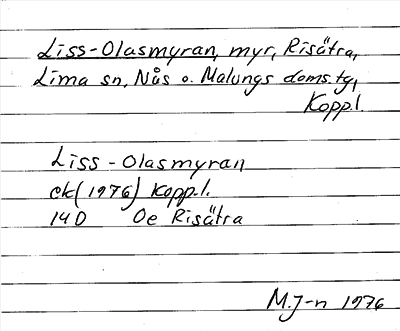 Liss-Olasmyran, myr, Risätra,
Lima sn, Nås o. Malungs doms.tg,
Koppl.
Liss-Olasmyran
ek (1976) Koppl.
14 D Oe Risätra
M.J-n 1976